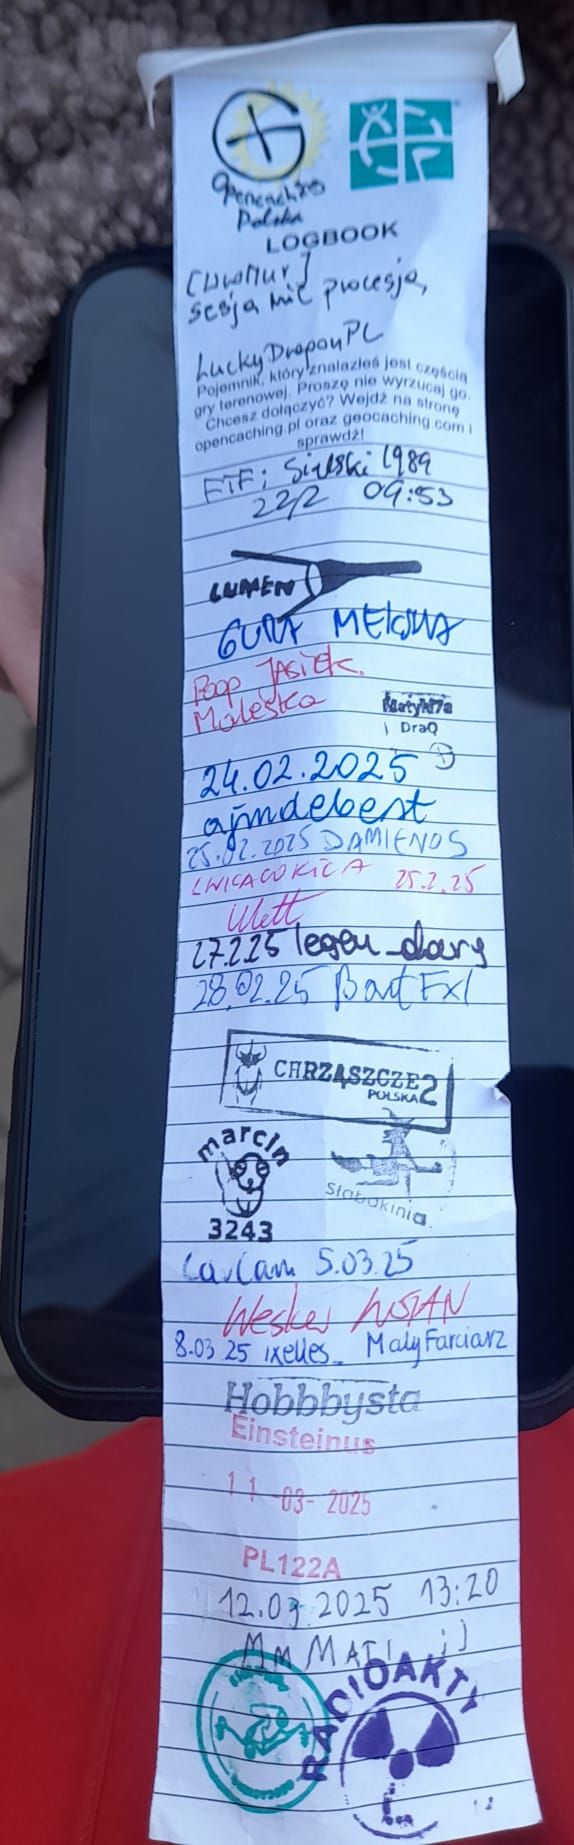 Opencaching
Polska
LOGBOOK
sesja nie procesja
LuckyDragonPL
Pojemnik, który znalazłeś jest częścią
gry terenowej. Proszę nie wyrzucaj go.
Chcesz dołączyć? Wejdź na stronę
opencaching.pl oraz geocaching.com i
sprawdź!
FTF: Sielski 1989
22/2 09:53
LUMEN
GURA MELOWA
Bop Jasiek.
Maleśka
DraQ
24.02.2025
ajmdebest
25.02.2025 DAMIENOS
25.2.25
27.2.25 legen_dary
28.02.25 BartExl
CHRZĄSZCZE2
POLSKA
marcin
3243
Słabakinia
5.03.25
Wesker
8.03 25 ixelles_ MalyFarciarz
Hobbbysta
Einsteinus
11-03-2025
PL122A
12.03.2025 13:20
MM MATI ;)
RADIOAKTY